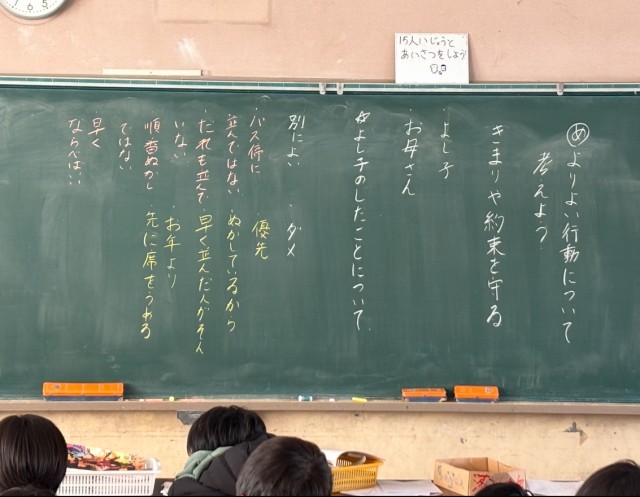 15人いじょうと
あいさつをしよう
めよりよい行動について
考えよう
きまりや約束を守る
・よし子
・お母さん
☆よし子のしたことについて
別によい
・バス停に
並んではない
・だれも並んで
いない
・順番ぬかし
ではない
・早く
ならべばいい
・ダメ
優先
・ぬかしているから
・早く並んだ人がそん
・お年より
・先に席をうめる